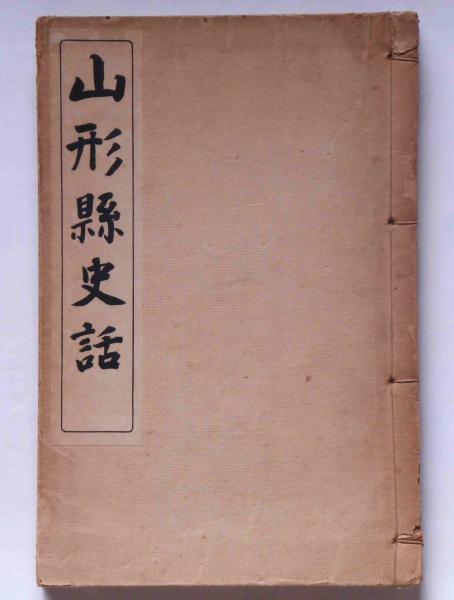 山形縣史話